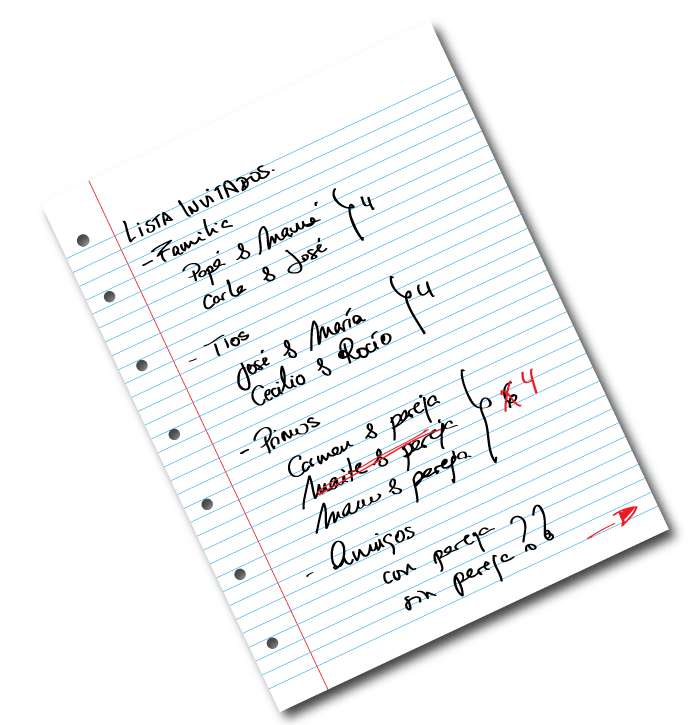 LISTA INVITADOS.
- Familia
Papá & Mamá
Carla & José
4
- Tíos
José & María
Cecilio & Rocío
4
- Primos
Carmen & pareja
Maite & pareja
Manu & pareja
4
- Amigos
con pareja
sin pareja ??